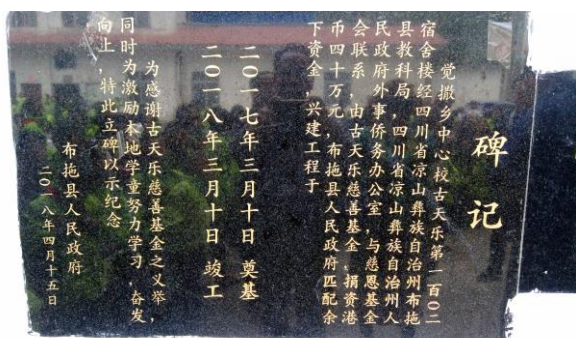 碑记
觉撒乡中心校古天乐第一百0二
宿舍楼经四川省凉山彝族自治州布拖
县教科局，四川省凉山彝族自治州人
民政府外事侨务办公室，与慈恩基金
会联系，由古天乐慈善基金，捐资港
币四十万元，布拖县人民政府匹配余
下资金，兴建工程于
二〇一七年三月十日 奠基
二〇一八年三月十日 竣工
为感谢古天乐慈善基金之义举，
同时为激励本地学童努力学习，奋发
向上，特此立碑以示纪念
布拖县人民政府
二〇一八年四月十五日